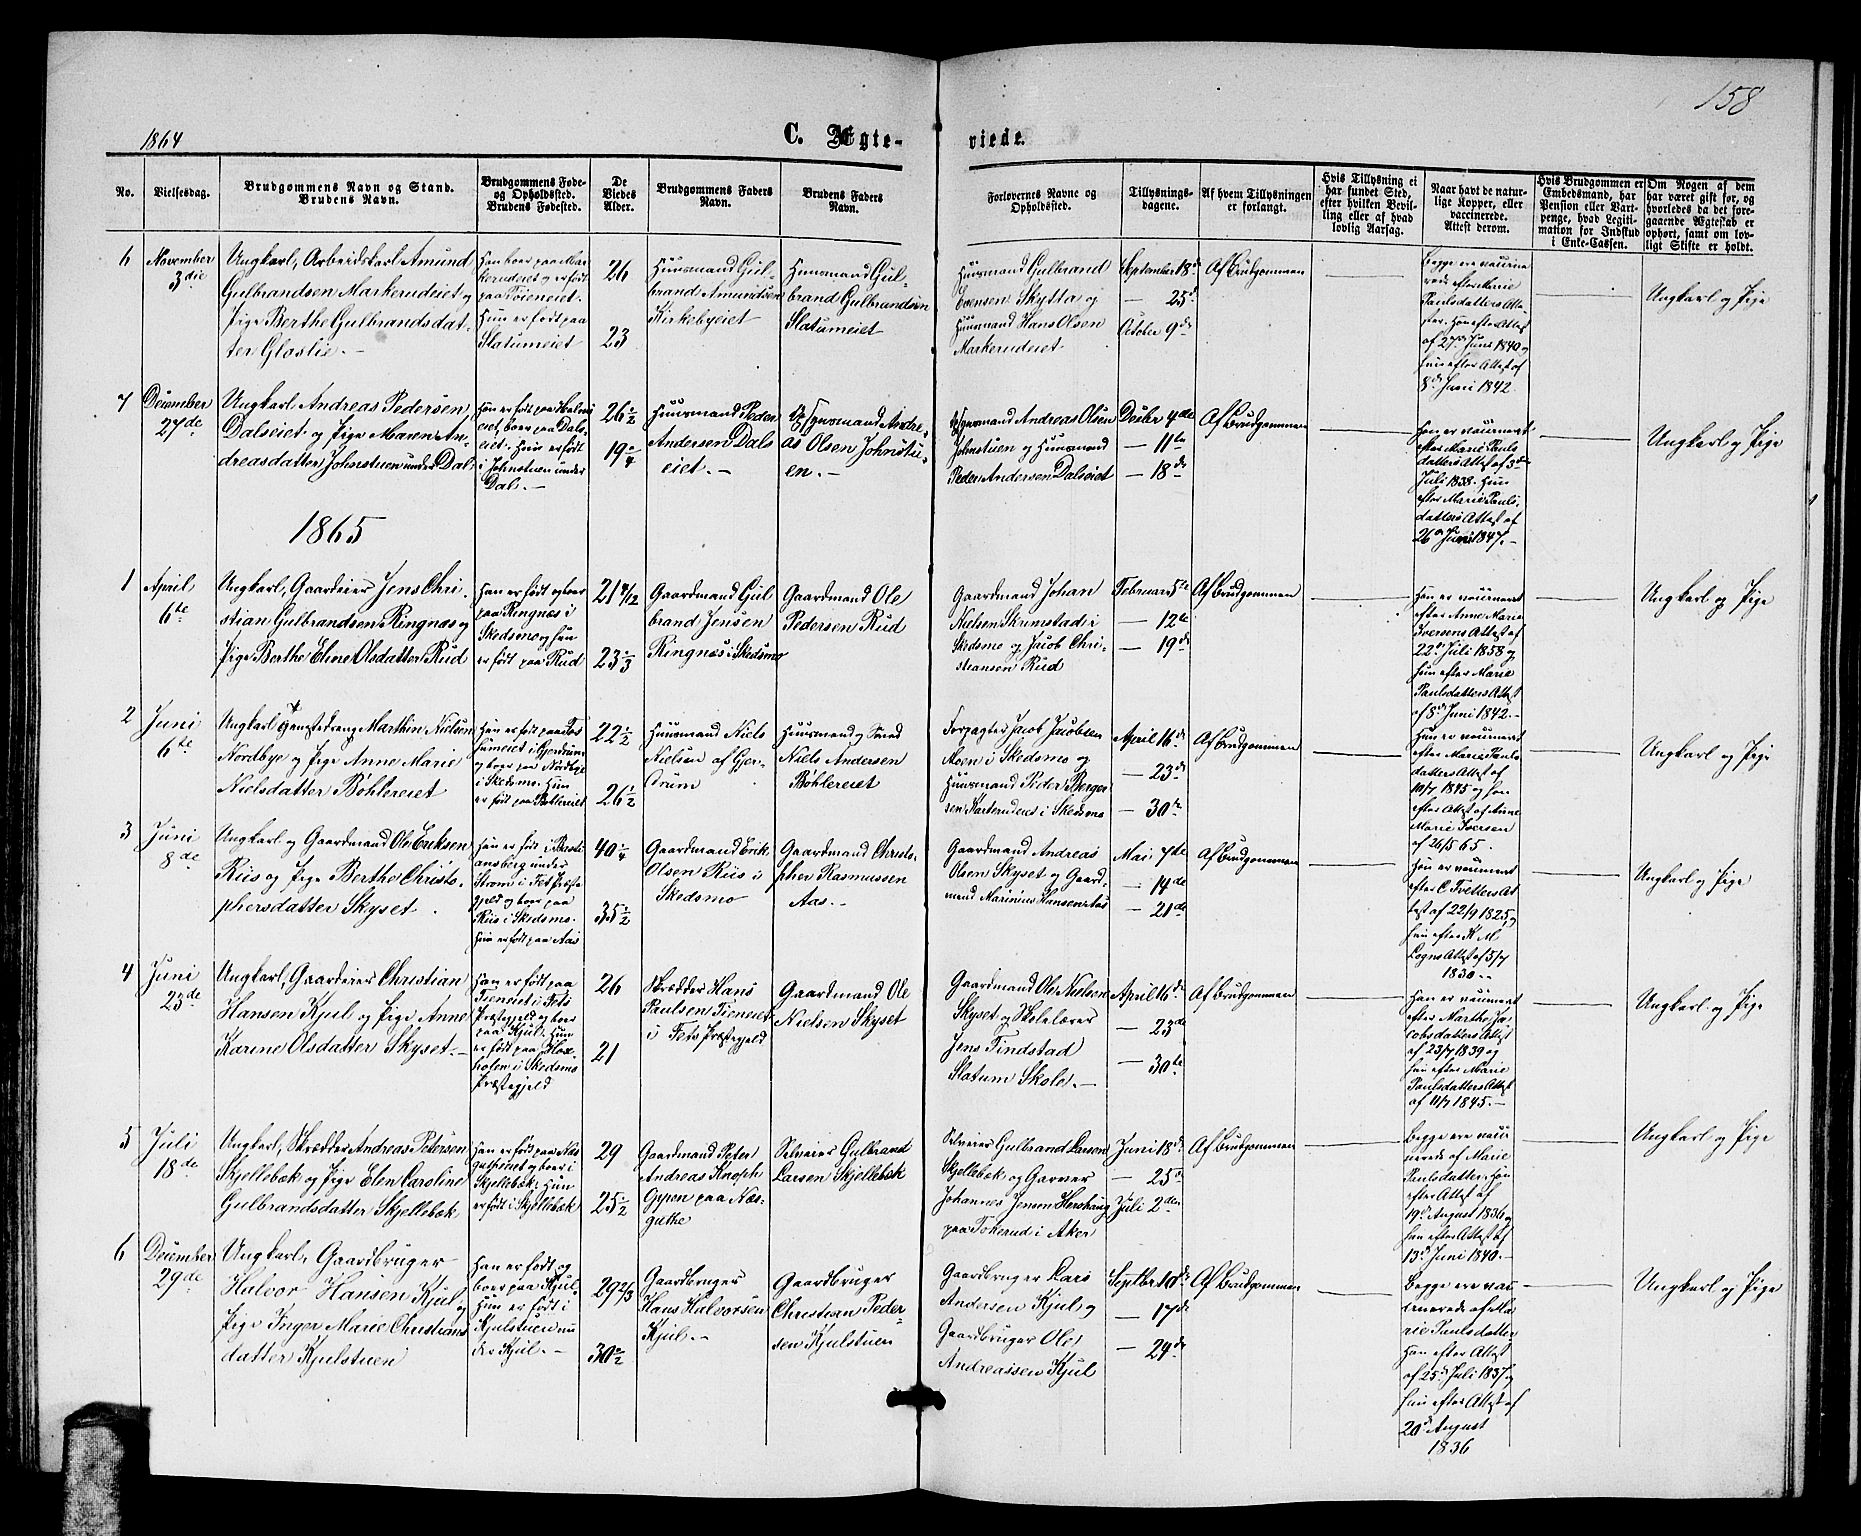 158
1864
C. Ægte-
viede.
No.
Vielsesdag.
Brudgommens Navn og Stand.
Brudens Navn.
Brudgommens Føde-
og Opholdsted.
Brudens Fødested.
De
Viedes
Alder.
Brudgommens Faders
Navn.
Brudens Faders
Navn.
Forlovernes Navne og
Opholdsted.
Tillysnings-
dagene.
Af hvem Tillysningen
er forlangt.
Hvis Tillysning ei
har fundet Sted,
efter hvilken Bevil-
ling eller af hvad
lovlig Aarsag.
Naar havt de natur-
lige Kopper, eller
vaccinerede.
Attest derom.
Hvis Brudgommen er
Embedsmand, har
Pension eller Vart-
penge, hvad Legiti-
mation for Indskud
i Enke-Cassen.
Om Nogen af dem
har været gift før, og
hvorledes da det fore-
gaaende Ægteskab er
ophørt, samt om lov-
ligt Skifte er holdt.
6
November
3die
Ungkarl, Arbeidskarl Amund
Gulbrandsen Markerudeiet og
Pige Berthe Gulbrandsdat-
ter Gloslie.-
Han boer paa Mar-
kerudeiet og er født
paa Töieneiet.
Hun er født paa
Slatumeiet
26
23
Huusmand Gul-
brand Amundsen
Kirkebyeiet
Huusmand Gul-
brand Gulbrandsen
Slatumeiet
Huusmand Gulbrand
Evensen Skytta og
Huusmand Hans Olsen
Markerudeiet
September 18de
- 25de
October 9de
Af Brudgommen
Begge ere vaccine-
rede efter Marie
Paulsdatters Atte-
ster. Han efter Attest
af 27de Juni 1840 og
hun efter Attest af
8de Juni 1842.
Ungkarl og Pige
7
December
27de
Ungkarl Andreas Pedersen
Dalseiet og Pige Maren An-
dreasdatter Johnstuen under Dal
eiet, boer paa Dals-
eiet. Hun er født
i Johnstuen under
Dal.-
26 1/2
19 3/4
Huusmand Peder
Andersen Dals
eiet.-
Huusmand Andre-
as Olsen Johnstu-
en.-
Huusmand Andreas Olsen
Johnstuen og Huusmand
Peder Andersen Dalseiet
Decbr 4de
- 11te
- 18de
Af Brudgommen
Han er vaccineret
efter Marie Pauls
datters Attest af 3de
Juli 1838. Hun
efter Marie Pauls-
datters Attest af
26de Juni 1847.-
Ungkarl og Pige
1865
1
April
6te
Ungkarl, Gaardeier Jens Chri-
stian Gulbrandsen Ringnæs og
Pige Berthe Eline Olsdatter Rud
Han er født og boer
paa Ringnæs i
Skedsmo og hun
er født paa Rud
21 4/12
23 1/3
Gaardmand Gul
brand Jensen
Ringnæs i Skedsmo
Gaardmand Ole
Pedersen Rud
Gaardmand Johan
Nielsen Skrimstad i
Skedsmo og Jacob Chri-
stiansen Rud
Februari 5te
- 12te
- 19de
Af Brudgommen
Han er vaccineret
efter Anne Marie
Iversens Attest af
22de Juli 1858 og
hun efter Marie
Paulsdatters Attest
af 8de Juni 1842.-
Ungkarl og Pige
2
Juni
6te
Ungkarl Tjenestedreng Marthin Nielsen
Nordbye og Pige Anne Marie
Nielsdatter Böhlereiet
og boer paa Nordbye
i Skedsmo. Hun
er født paa Böhlereiet
22 1/2
26 1/2
Huusmand Niels
Nielsen af Gjer-
drum
Huusmand og Smed
Niels Andersen
Böhlereiet
Forpagter Jacob Jacobsen
Moen i Skedsmo og
Huusmand Peder Berger
sen Korterudeiet i Skedsmo
April 16de
- 23de
- 30te
Af Brudgommen
Hun er vaccineret
efter Marie Pauls
datters Attest af
10/7 1845 og han
efter Attest af Anne
Marie Iversen
af 26/5 65.
Ungkarl og Pige
3
Juni
8de
Ungkarl og Gaardmand Ole Eriksen
Riis og Pige Berthe Christo-
phersdatter Skyset.
Han er født i Basti
ansberg under
Strøm i Fet Præste
gjeld og boer paa
Riis i Skedsmo.
Hun er født paa Aas
40 1/4
35 1/2
Gaardmand Erik
Olsen Riis i
Skedsmo
Gaardmand Christo-
pher Rasmussen
Aas.-
Gaardmand Andreas
Olsen Skyset og Gaard-
mand Marinius Hansen Aas
Mai 7de
- 14de
- 21de
Af Brudgommen
Han er vaccineret
test af 22/9 1825, og
hun efter K M
Logns Attest af 5/7
1830.-
Ungkarl og Pige
4
Juni
23de
Ungkarl, Gaardeier Christian
Hansen Kjul og Pige Anne
Karine Olsdatter Skyset.-
Han er født paa
Tieneiet i Fets
Præstegjeld og boer
paa Kjul. Hun
er født paa Flax-
hofen i Skedsmo
Præstegjeld
26
21
Skrædder Hans
Paulsen Tieneiet
i Fets Præstegjeld
Gaardmand Ole
Nielsen Skyset
Gaardmand Ole Nielsen
Skyset og Skolelærer
Jens Tindstad
Slatum Skole.-
April 16de
- 23de
- 30te
Af Brudgommen
Han er vaccineret
efter Marthe Ja-
cobsdatters Attest
af 23/7 1839 og
hun efter Marie
Paulsdatters Attest
af 11/7 1845.-
Ungkarl og Pige
5
Juli
18de
Ungkarl, Skrædder Andreas Petersen
Skjellebæk og Pige Elen Caroline
Gulbrandsdatter Skjellebæk
Han er født paa Næs
Skjellebæk. Hun
er født i Skjellebæk
29
25 1/2
Gaardmand Peter
Andreas Knoph
Gypen paa Næs-
guthe
Selveier Gulbrand
Larsen Skjellebæk
Selveier Gulbrand Larsen
Skjellebæk og Garver
Johannes Jensen Hershaug
paa Tokerud i Aker
Juni 18de
- 25de
Juli 2den
Af Brudgommen
Begge ere vacci
nerede af Marie
Paulsdatter, han
efter Attest af
19de August 1836 og
hun efter Attest af
13de Juni 1840.-
Ungkarl og Pige
6
December
29de
Ungkarl, Gaardbruger
Halvor Hansen Kjul og
Pige Inger Marie Christians
datter Kjulstuen
Han er født og
boer paa Kjul.
Hun er født i
Kjulstuen un
der Kjul.-
29 2/3
30 1/2
Gaardbruger
Hans Halvorsen
Kjul.-
Gaardbruger
Christian Peder-
sen Kjulstuen
Gaardbruger Lars
Andersen Kjul og
Gaardbruger Ole
Andreassen Kjul
Septbr 10de
- 17de
- 24de
Af Brudgommen
Begge ere vac
cinerede af Ma
rie Paulsdatter
Han efter Attest
af 25de Juli 1837 og
hun efter Attest af
20de August
1836
Ungkarl og Pige